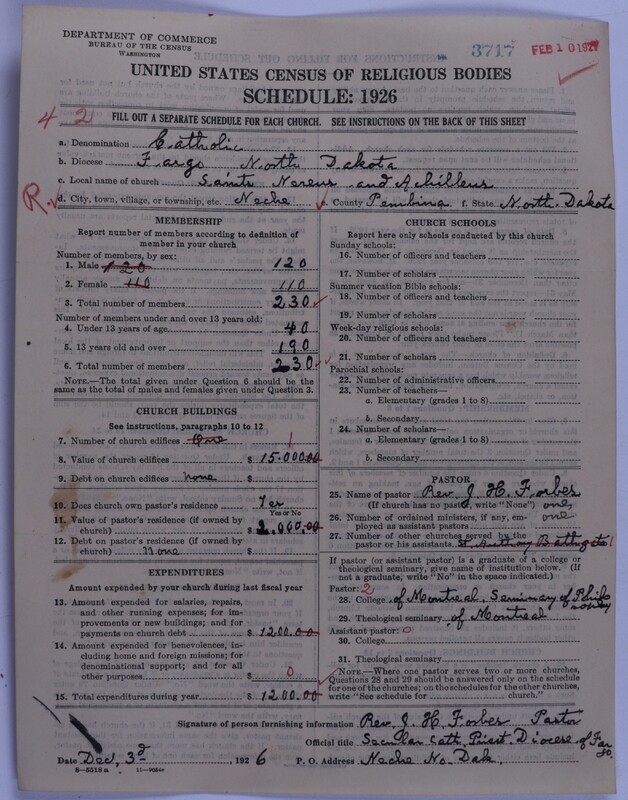 DEPARTMENT OF COMMERCE
BUREAU OF THE CENSUS
WASHINGTON
3717
FEB 10 1927
UNITED STATES CENSUS OF RELIGIOUS BODIES
SCHEDULE: 1926
4 2
FILL OUT A SEPARATE SCHEDULE FOR EACH CHURCH. SEE INSTRUCTIONS ON THE BACK OF THIS SHEET
a. Denomination Catholic
b. Diocese Fargo North Dakota
c. Local name of church Saints Nereus and Achilleus
R.
d. City, town, village, or township, etc. Neche e. County Pembina f. State North Dakota
MEMBERSHIP
Report number of members according to definition of
member in your church
Number of members, by sex:
1. Male 120 120
2. Female 110 110
3. Total number of members 230
Number of members under and over 13 years old:
4. Under 13 years of age 40
5. 13 years old and over 190
6. Total number of members 230
NOTE.—The total given under Question 6 should be
the same as the total of males and females given under Question 3.
CHURCH BUILDINGS
See instructions, paragraphs 10 to 12
7. Number of church edifices One 1
8. Value of church edifices $ 15.000.00
9. Debt on church edifices none $
10. Does church own pastor's residence Yes
Yes or No
11. Value of pastor's residence (if owned by
church) $ 2,000.00
12. Debt on pastor's residence (if owned by
church) none $
EXPENDITURES
Amount expended by your church during last fiscal year
13. Amount expended for salaries, repairs,
and other running expenses; for im-
provements or new buildings; and for
payments on church debt $ 1200.00
14. Amount expended for benevolences, in-
cluding home and foreign missions; for
denominational support; and for all
other purposes $ 0
15. Total expenditures during year $ 1200.00
CHURCH SCHOOLS
Report here only schools conducted by this church
Sunday schools:
16. Number of officers and teachers
17. Number of scholars
Summer vacation Bible schools:
18. Number of officers and teachers
19. Number of scholars
Week-day religious schools:
20. Number of officers and teachers
21. Number of scholars
Parochial schools:
22. Number of administrative officers
23. Number of teachers—
a. Elementary (grades 1 to 8)
b. Secondary
24. Number of scholars—
a. Elementary (grades 1 to 8)
b. Secondary
PASTOR
25. Name of pastor Rev. J. H. Forbes
(If church has no pastor, write "None") one
26. Number of ordained ministers, if any, em-
ployed as assistant pastors one
27. Number of other churches served by the
pastor or his assistants St. Anthony Bathgate 1
If pastor (or assistant pastor) is a graduate of a college or
theological seminary, give name of institution below. (If
not a graduate, write "No" in the space indicated.)
Pastor: 2
28. College of Montreal. Seminary of Philosophy
29. Theological seminary of Montreal
Assistant pastor: 0
30. College
31. Theological seminary
NOTE.—Where one pastor serves two or more churches,
Questions 28 and 29 should be answered only on the schedule
for one of the churches; on the schedules for the other churches,
write "See schedule for church."
Signature of person furnishing information Rev. J. H. Forbes Pastor
Official title Secular Cath. Priest. Diocese of Fargo
Date Dec, 3d, 1926 P. O. Address Neche No. Dak.
8—5518 a